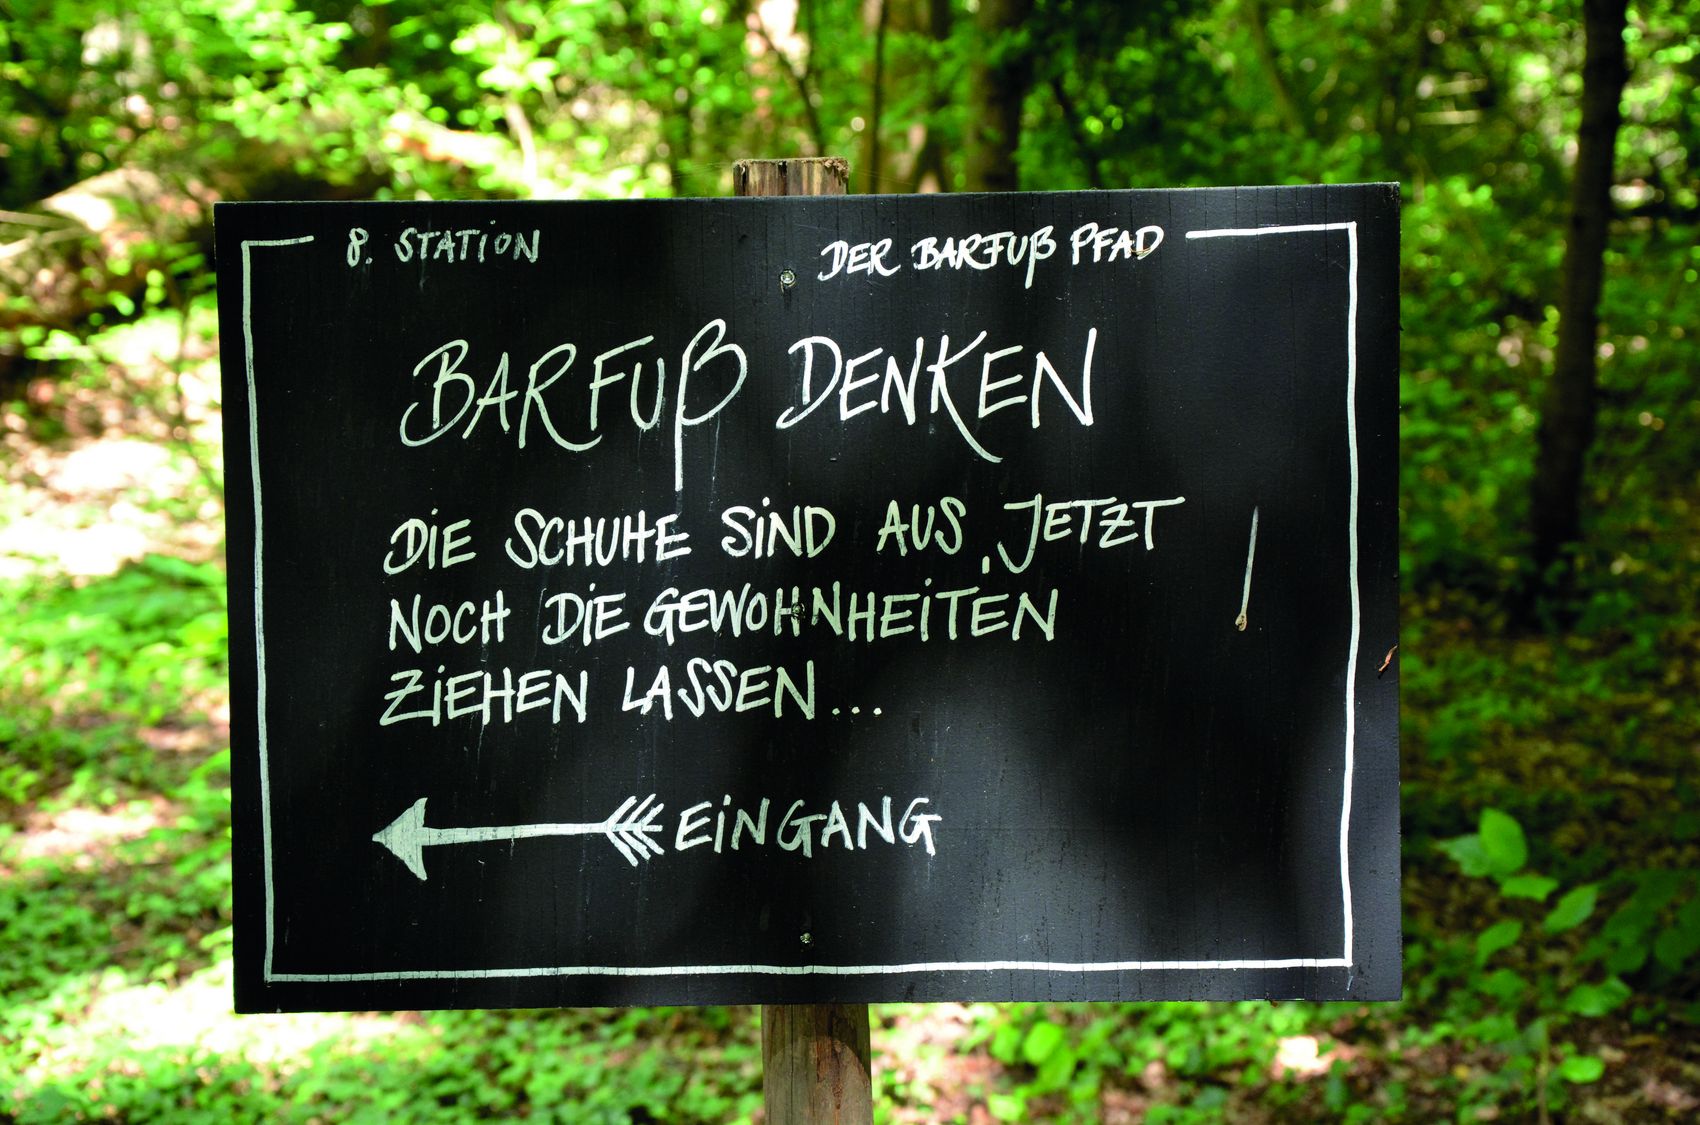 8. STATION DER BARFUß PFAD
BARFUß DENKEN
DIE SCHUHE SIND AUS, JETZT
NOCH DIE GEWOHNHEITEN
ZIEHEN LASSEN...
EINGANG